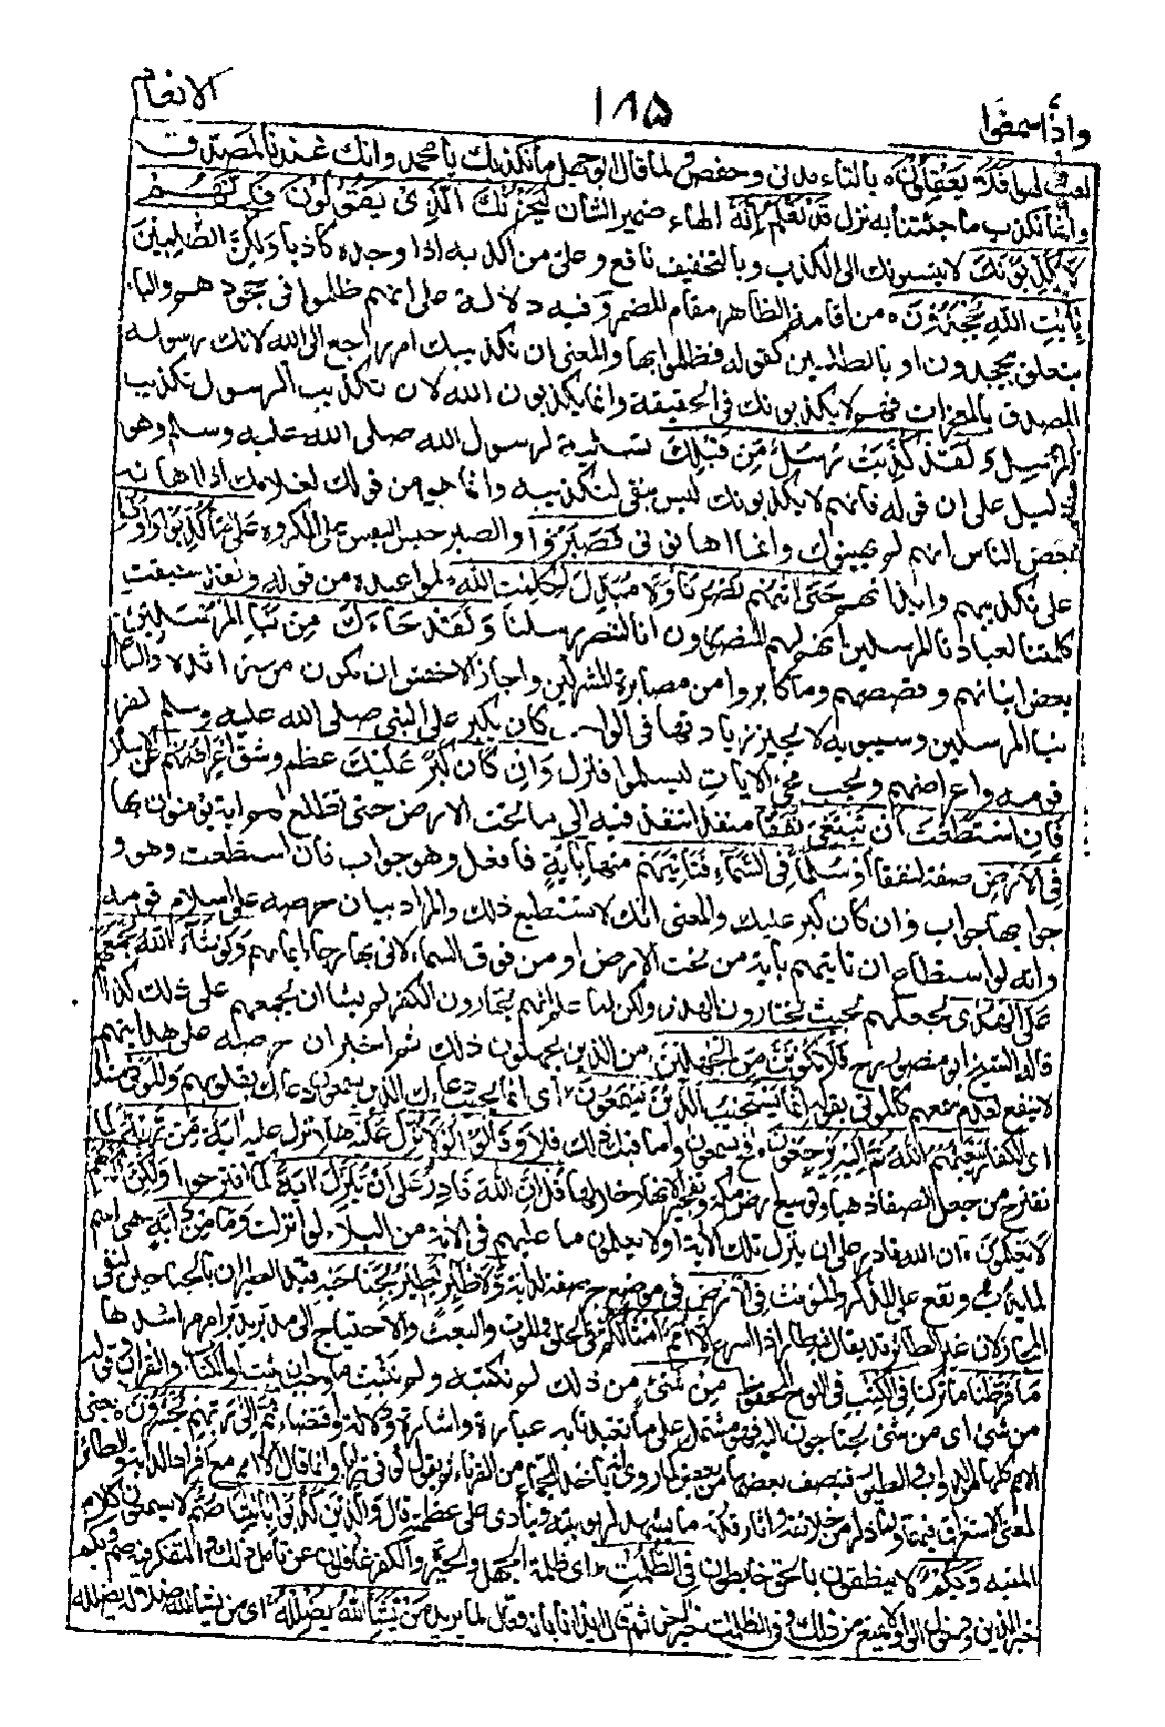 واذا سمعوا
١٨٥
الانعام
لعب ولهو افلا يعقلون ه بالتاء مدنى وحفص لما قال ابو جهل ما نكذبك يا محمد وانك عندنا لمصدق
وانما نكذب ما جئتنا به نزل قد نعلم انه الهاء ضمير الشان ليحزنك الذى يقولون فانهم
لا يكذبونك لا ينسبونك الى الكذب وبالتخفيف نافع وعلى من اكذبه اذا وجده كاذبا ولكن الظلمين
بايت الله يجحدون ه من اقامة الظاهر مقام المضمر وفيه دلالة على انهم ظلموا فى جحودهم والباء
يتعلق بيجحدون او بالظلمين كقوله فظلموا بها والمعنى ان تكذيبك امر راجع الى الله لانك رسوله
المصدق بالمعجزات فهم لا يكذبونك فى الحقيقة وانما يكذبون الله لان تكذيب الرسول تكذيب
المرسل ولقد كذبت رسل من قبلك تسلية لرسول الله صلى الله عليه وسلم وهو
دليل على ان قوله فانهم لا يكذبونك ليس بنفى لتكذيبه وانما هو من قولك لغلامك اذا اهانه
بعض الناس انهم لم يهينوك وانما اهانونى فصبروا والصبر حبس النفس على المكروه على ما كذبوا واوذوا
على تكذيبهم وايذائهم حتى اتىهم نصرنا ولا مبدل لكلمت الله لمواعيده من قوله ولقد سبقت
كلمتنا لعبادنا المرسلين انهم لهم المنصورون انا لننصر رسلنا ولقد جاءك من نبا المرسلين
بعض انبائهم وقصصهم وما كابروا من مصابرة المشركين واجاز الاخفش ان يكون من زائدة والفاعل
نبا المرسلين وسيبويه لا يجيز زيادتها فى الواجب كان يكبر على النبى صلى الله عليه وسلم كفر
قومه واعراضهم ويحب مجئ الايات ليسلموا فنزل وان كان كبر عليك عظم وشق اعراضهم عن الاسلام
فان استطعت ان تبتغى نفقا منفذا تنفذ فيه الى ما تحت الارض حتى تطلع لهم اية يؤمنون بها
فى الارض صفة لنفقا او سلما فى السماء فتاتيهم منها باية فافعل وهو جواب فان استطعت وهو و
جوابها جواب وان كان كبر عليك والمعنى انك لا تستطيع ذلك والمراد بيان حرصه على اسلام قومه
وانه لو استطاع ان ياتيهم باية من تحت الارض او من فوق السماء لاتى بها رجاء ايمانهم ولو شاء الله لجمعهم
على الهدى لجعلهم بحيث يختارون الهدى ولكن لما علم انهم يختارون الكفر لم يشا ان يجمعهم على ذلك كذا
قاله الشيخ ابو منصور رح فلا تكونن من الجهلين من الذين يجهلون ذلك ثم اخبر ان حرصه على هدايتهم
لا ينفع لعدم سمعهم كالموتى بقوله انما يستجيب الذين يسمعون اى انما يجيب دعاءك الذين يسمعون دعاءك بقلوبهم والموتى مبتدا
اى الكفار يبعثهم الله ثم اليه يرجعون فح يسمعون واما قبل ذلك فلا وقالوا لولا نزل عليه هلا انزل عليه اية من ربه كما
نقترح من جعل الصفا ذهبا وتوسيع ارض مكة وتفجير الانهار خلالها قل ان الله قادر على ان ينزل اية كما اقترحوا ولكن اكثرهم
لا يعلمون ه ان الله قادر على ان ينزل تلك الاية او لا يعلمون ما عليهم فى الاية من البلاء لو انزلت وما من دابة هى اسم
لما يدب وتقع على المذكر والمؤنث فى الارض فى موضع جر صفة لدابة ولا طئر يطير بجناحيه قيد الطيران بالجناحين لنفى
المجاز لان غير الطائر قد يقال فيه طار اذا اسرع الا امم امثالكم فى الخلق والموت والبعث والاحتياج الى مدبر يدبر امرها
ما فرطنا ما تركنا فى الكتب فى اللوح المحفوظ من شئ من ذلك لم نكتبه ولم نثبت ما وجب ان يثبت او الكتاب القران وقوله
من شئ اى من شئ يحتاجون اليه فهو مشتمل على ما تعبدنا به عبارة واشارة ودلالة واقتضاء ثم الى ربهم يحشرون ه يعنى
الامم كلها من الدواب والطير فينصف بعضها من بعض كما روى انه ياخذ للجماء من القرناء ثم يقول كونى ترابا وانما قال الا امم مع افراد الدابة والطائر
لمعنى الاستغراق فيهما ولما ذكر من خلائقه واثار قدرته ما يشهد لربوبيته وينادى على عظمته قال والذين كذبوا بايتنا صم لا يسمعون كلام
المنبه وبكم لا ينطقون بالحق خابطون فى الظلمت اى ظلمة الجهل والحيرة والكفر غافلون عن تامل ذلك والتفكر فيه صم وبكم
خبر الذين من ذلك وفى الظلمت خبر اخر ثم قال ايذانا بانه فعال لما يريد من يشا الله يضلله اى من يشا الله ضلاله يضلله